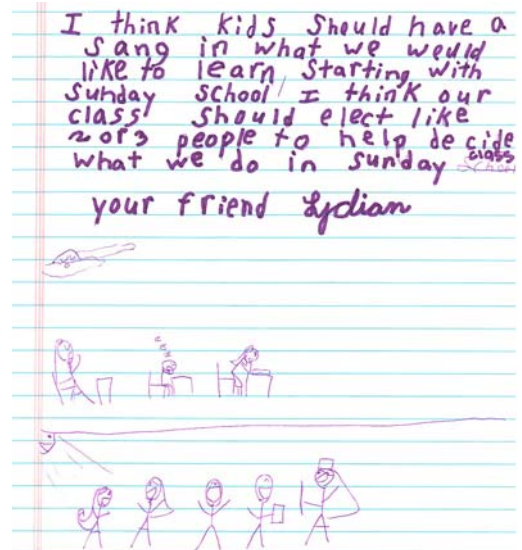 I think kids should have a
sang in what we would
like to learn starting with
Sunday school I think our
class should elect like
2 or 3 people to help decide
what we do in Sunday class
your friend Lydian
z z z